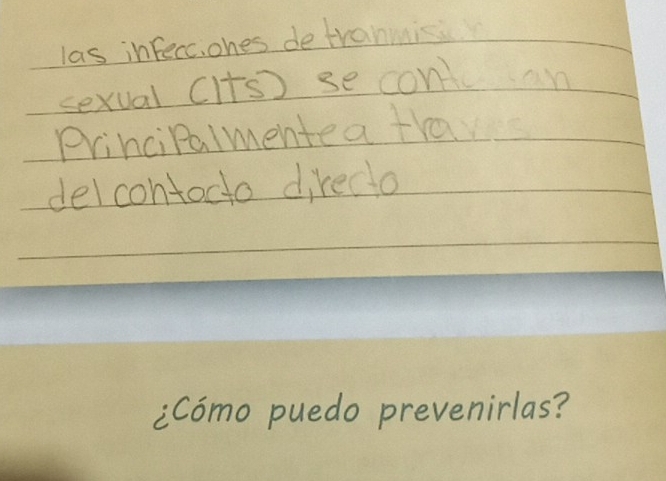 las infecciones de tranmision
sexual (ITS) se
Principalmente a traves
del contacto directo
¿Cómo puedo prevenirlas?